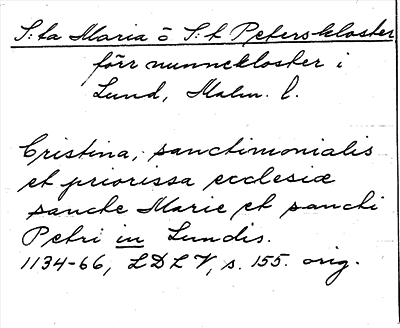 S:ta Maria o S:t Peterskloster
förr nunnekloster i
Lund, Malm. l.
Cristina, sanctimonialis
et priorissa ecclesiæ
sancte Marie et sancti
Petri in Lundis.
1134-66, LDLV, s. 155. orig.